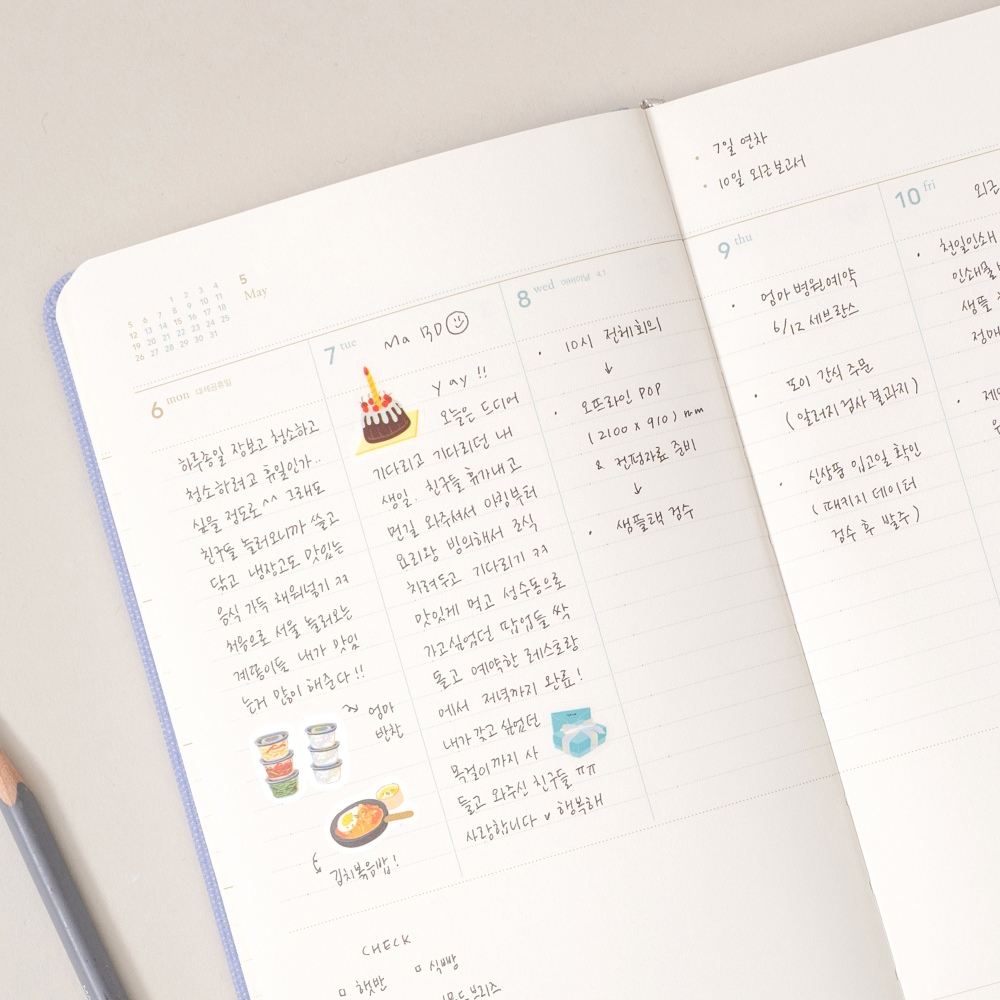 5
May
1 2 3 4
5 6 7 8 9 10 11
12 13 14 15 16 17 18
19 20 21 22 23 24 25
26 27 28 29 30 31
6 mon 대체공휴일
하루종일 장보고 청소하고
청소하려고 휴일인가..
싶을 정도로 ^^ 그래도
친구들 놀러오니까 쓸고
닦고 냉장고도 맛있는
음식 가득 채워넣기 ㅋㅋ
처음으로 서울 놀러오는
계팽이들 내가 맛있
는거 많이 해준다!!
엄마
반찬
김치볶음밥!
7 tue
Ma BD
yay !!
오늘은 드디어
기다리고 기다리던 내
생일. 친구들 휴가내고
먼길 와주셔서 아침부터
요리왕 빙의해서 조식
차려두고 기다리기 ㅋㅋ
맛있게 먹고 성수동으로
가고싶었던 팝업들 싹
돌고 예약한 레스토랑
에서 저녁까지 완료!
내가 갖고 싶었던
목걸이까지 사
들고 와주신 친구들 ㅠㅠ
사랑합니다 v 행복해
8 wed 어버이날 4.1
• 10시 전체회의
↓
• 오프라인 POP
(2100 x 910) mm
& 컨펌자료 준비
↓
• 샘플택 검수
CHECK
□ 햇반 □ 식빵
• 7일 연차
• 10일 외근보고서
9 thu
• 엄마 병원예약
6/12 세브란스
• 또이 간식 주문
(알러지 검사 결과지)
• 신상품 입고일 확인
(패키지 데이터
검수 후 발주)
10 fri
외근
• 천일인쇄